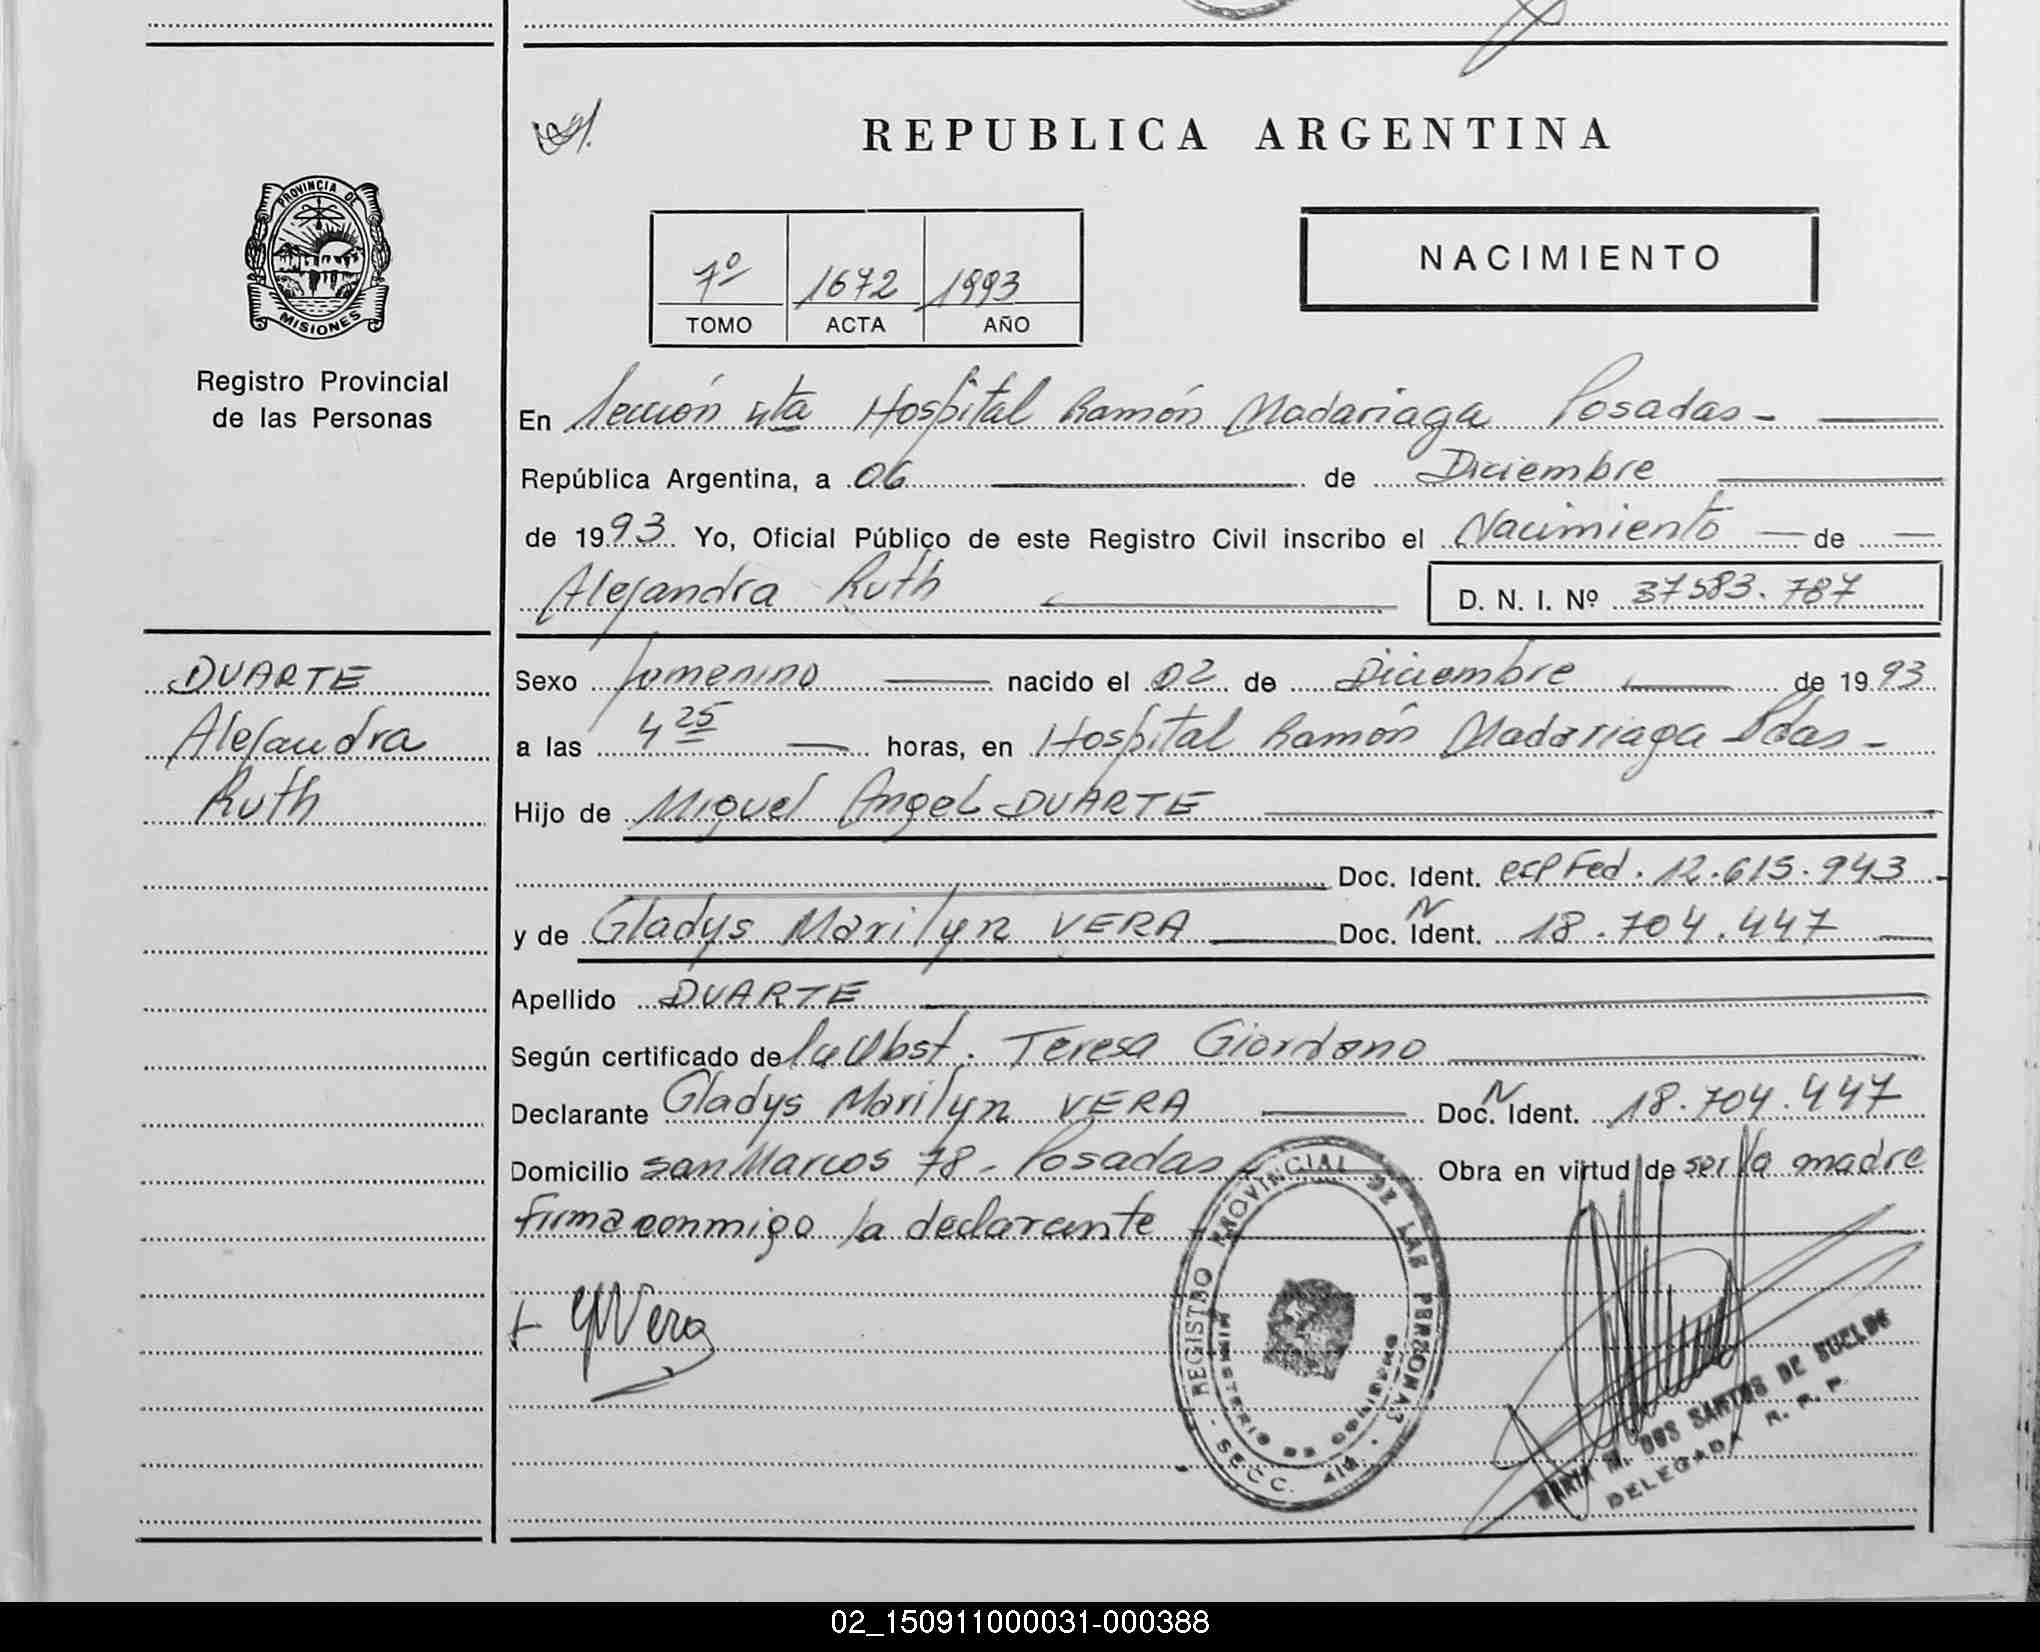 REPUBLICA ARGENTINA
PROVINCIA DE
MISIONES
Registro Provincial
de las Personas
7º 1672 1993
TOMO ACTA AÑO
NACIMIENTO
En Sección 4ta Hospital Ramón Madariaga Posadas -
República Argentina, a 06 de Diciembre
de 1993 Yo, Oficial Público de este Registro Civil inscribo el Nacimiento de
Alejandra Ruth D. N. I. Nº 37583.787
DUARTE
Alejandra
Ruth
Sexo femenino nacido el 02 de Diciembre de 1993
a las 4 25 horas, en Hospital Ramón Madariaga Pdas -
Hijo de Miguel Angel DUARTE
Doc. Ident. Fed. 12.615.943
y de Gladys Marilyn VERA Doc. N Ident. 18.704.447
Apellido DUARTE
Según certificado de la Obst. Teresa Giordano
Declarante Gladys Marilyn VERA Doc. N Ident. 18.704.447
Domicilio San Marcos 78 - Posadas - Obra en virtud de ser la madre
Firma conmigo la declarante
+ Vera
REGISTRO PROVINCIAL DE LAS PERSONAS
MINISTERIO DE GOBIERNO
SECC. 4ta.
MARIA M. DOS SANTOS DE SUELDE
DELEGADA R. P. P.
02_150911000031-000388